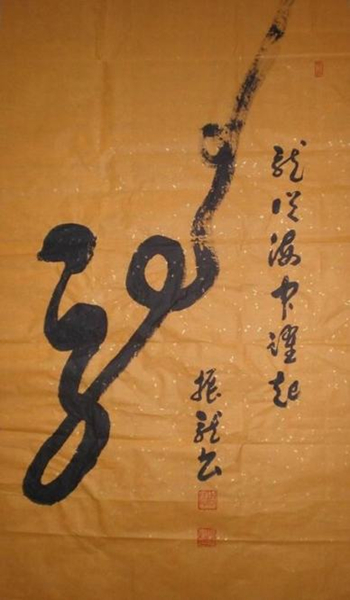 龍
龍從海中躍起
振龍書